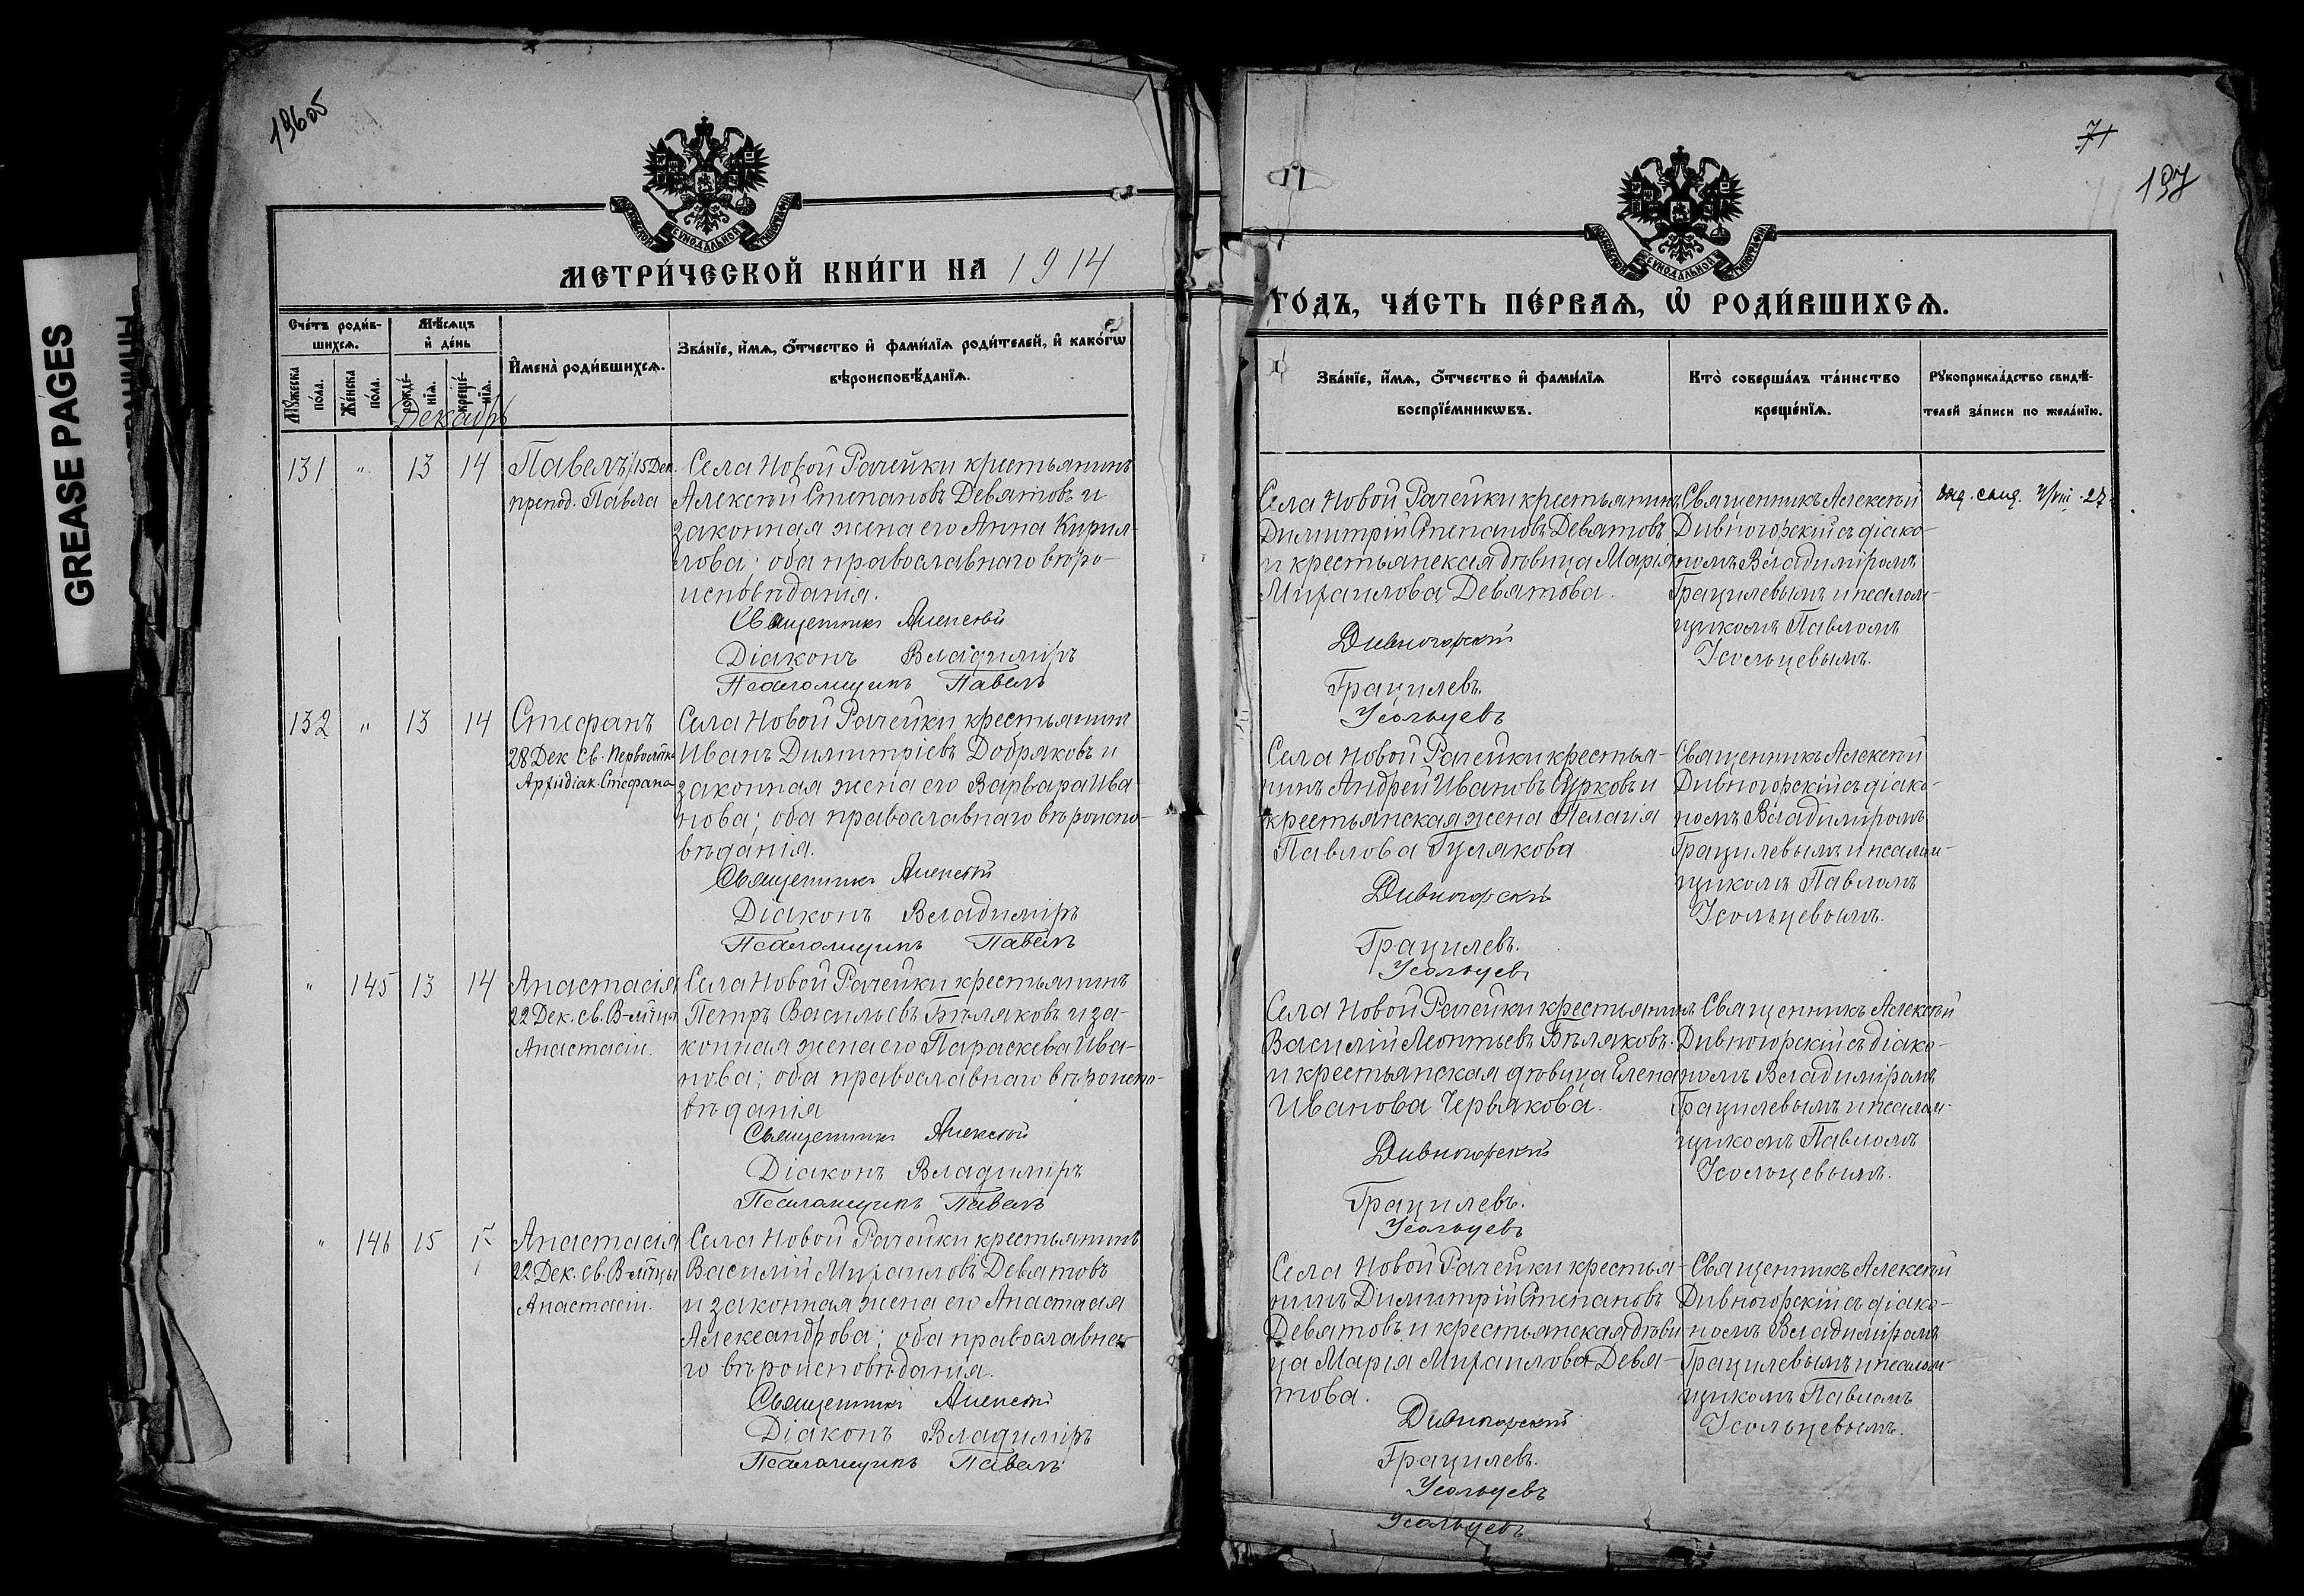 196об
GREASE PAGES
МЕТРИ́ЧЕСКОЙ КНИ́ГИ НА 1914
Сче́тъ роди́в-
шихсѧ.
Мѣ́сѧцъ
и҆ де́нь
И҆мена̀ роди́вшихсѧ.
Зва́нїе, и҆́мѧ, ѻ҆́тчество и҆ фами́лїѧ роди́телей, и҆ како́гѡ
вѣроисповѣ́данїѧ.
Мꙋ́жеска
по́ла.
Же́нска
по́ла.
рожде́-
нїѧ.
креще́-
нїѧ.
Декабрь
131 " 13 14 Павелъ 15 Дек.
препод. Павла
Села Новой Рачейки крестьянинъ
Алексѣй Степановъ Девятовъ и
законная жена его Анна Кирил-
лова; оба православнаго вѣро-
исповѣданія.
Священникъ Алексѣй
Діаконъ Владиміръ
Псаломщикъ Павелъ
132 " 13 14 Стефанъ
28 Дек Св. Первомчка
Архидіак. Стефана
Села Новой Рачейки крестьянин
Иванъ Димитріевъ Добряковъ и
законная жена его Варвара Ива
нова; оба православнаго вѣроиспо-
вѣданія.
Священникъ Алексѣй
Діаконъ Владиміръ
Псаломщикъ Павелъ
" 145 13 14 Анастасія
22 Дек. Св. В-мцы
Анастасіи.
Села Новой Рачейки крестьянинъ
Петръ Васильевъ Бѣляковъ и за-
конная жена его Параскева Ива-
нова; оба православнаго вѣроиспо-
вѣданія
Священникъ Алексѣй
Діаконъ Владиміръ
Псаломщикъ Павелъ
" 146 15 15 Анастасія
22 Дек. Св. В-мцы
Анастасіи.
Села Новой Рачейки крестьянинъ
Василій Михаиловъ Девятовъ
и законная жена его Анастасія
Александрова; оба православна-
го вѣроисповѣданія.
Священникъ Алексѣй
Діаконъ Владиміръ
Псаломщикъ Павелъ
71
197
ГО́ДЪ, ЧА́СТЬ ПЕ́РВАѦ, Ѽ РОДИ́ВШИХСѦ.
Зва́нїе, и҆́мѧ, ѻ҆́тчество и҆ фами́лїѧ
воспрїе́мникѡвъ.
Кто̀ соверша́лъ та́инство
креще́нїѧ.
Рꙋкоприкла́дство свидѣ́-
телей за́писи по жела́нїю.
Села Новой Рачейки крестьянинъ
Димитрій Степановъ Девятовъ
и крестьянская дѣвица Марія
Михаилова Девятова.
Дивногорскій
Грацилевъ.
Усольцевъ
Священникъ Алексѣй
Дивногорскій съ діако-
номъ Владиміромъ
Грацилевымъ и псалом-
щикомъ Павломъ
Усольцевымъ.
Села Новой Рачейки крестья-
нинъ Андрей Ивановъ Сурковъ и
крестьянская жена Пелагія
Павлова Гуслякова
Дивногорскій
Грацилевъ.
Усольцевъ
Священникъ Алексѣй
Дивногорскій съ діако-
номъ Владиміромъ
Грацилевымъ и псалом-
щикомъ Павломъ
Усольцевымъ.
Села Новой Рачейки крестьянинъ
Василій Леонтьевъ Бѣляковъ.
и крестьянская дѣвица Елена
Иванова Червякова.
Дивногорскій
Грацилевъ.
Усольцевъ
Священникъ Алексѣй
Дивногорскій съ діако-
номъ Владиміромъ
Грацилевымъ и псалом-
щикомъ Павломъ
Усольцевымъ.
Села Новой Рачейки крестья-
нинъ Димитрій Степановъ
Девятовъ и крестьянская дѣви
ца Марія Михаилова Девя-
това.
Дивногорскій
Грацилевъ.
Усольцевъ
Усольцевъ
Священникъ Алексѣй
Дивногорскій съ діако-
номъ Владиміромъ
Грацилевымъ и псалом-
щикомъ Павломъ
Усольцевымъ.